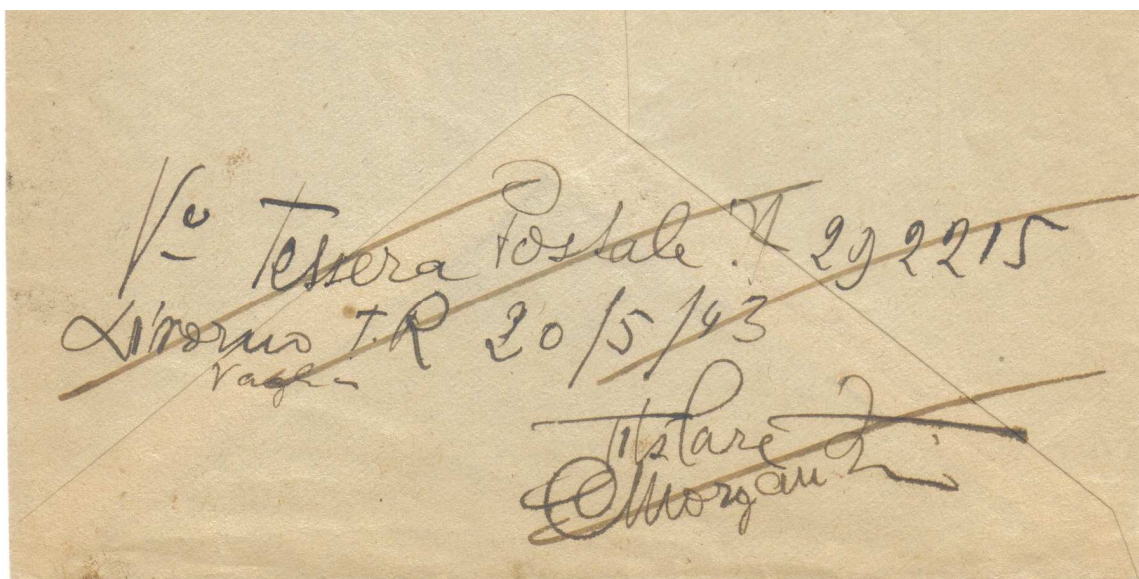 Vº Tessera Postale N 292215
Livorno T.R 20/5/43
Vaglia
Titolare
Morganti